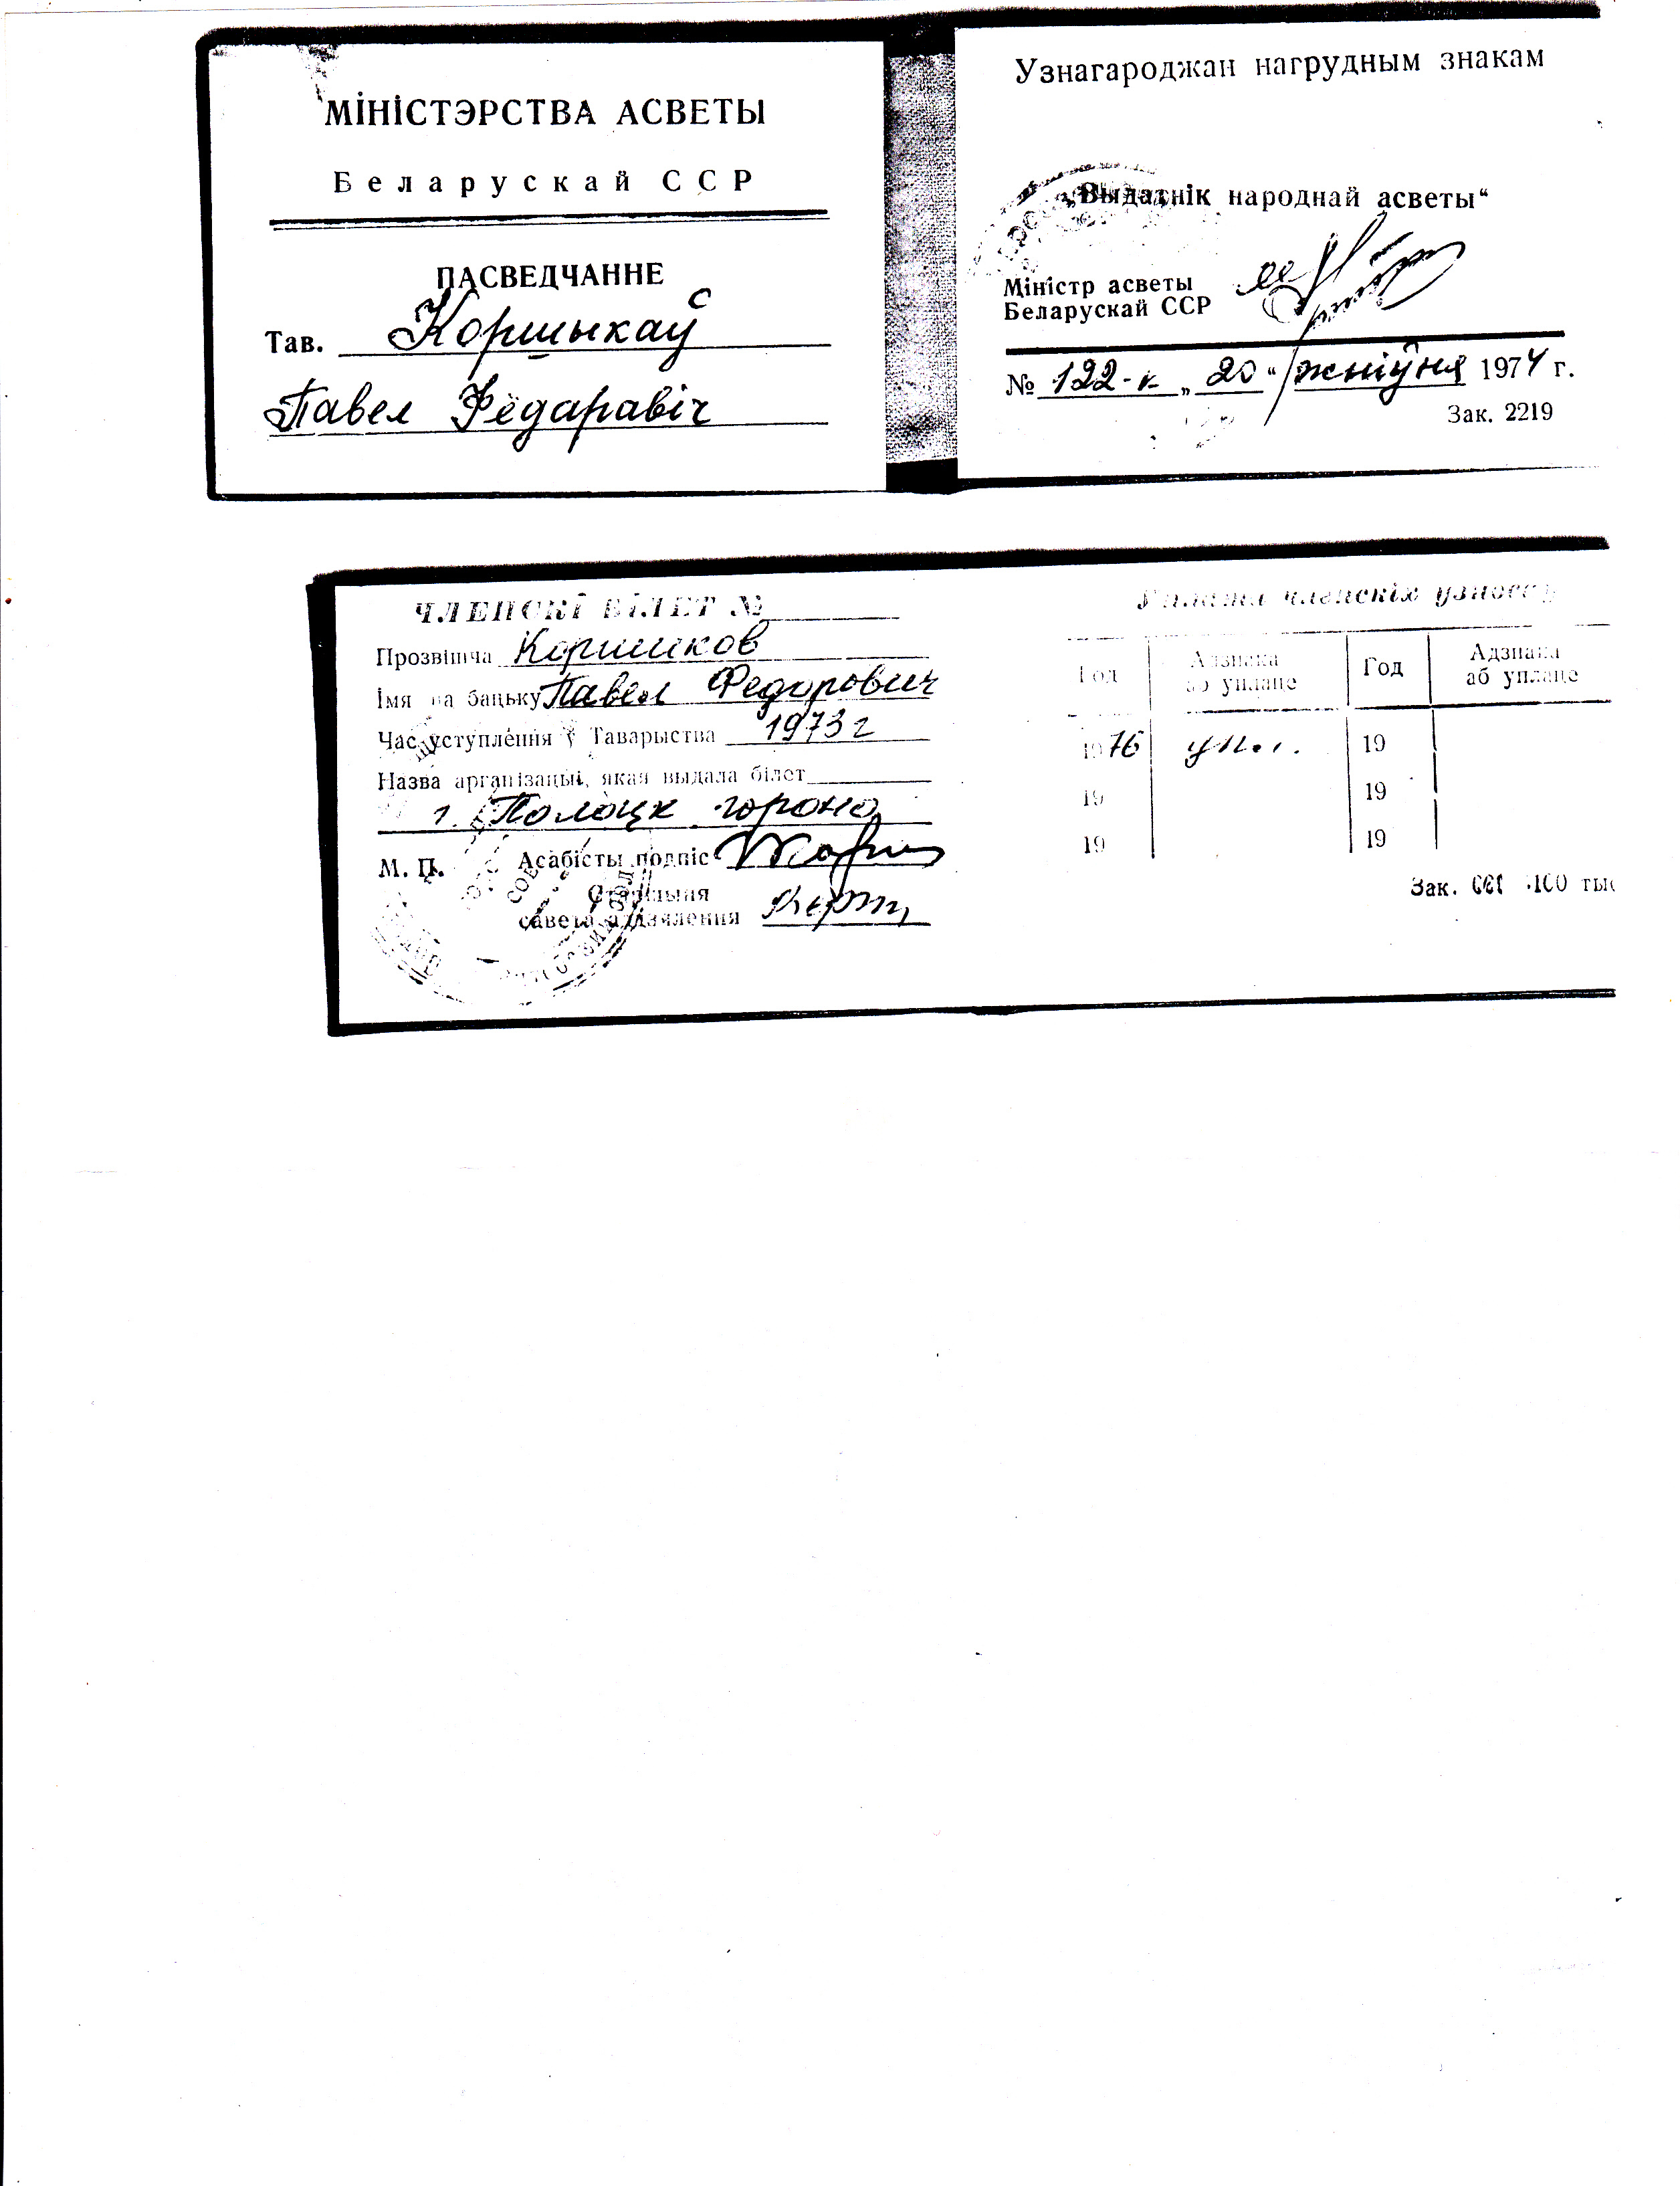 МІНІСТЭРСТВА АСВЕТЫ
Беларускай ССР
ПАСВЕДЧАННЕ
Тав. Коршыкаў
Павел Фёдаравіч
Узнагароджан нагрудным знакам
„Выдатнік народнай асветы“
Міністр асветы
Беларускай ССР
№ 122-к „20“ жніўня 1974 г.
Зак. 2219
ЧЛЕНСКІ БІЛЕТ №
Прозвішча Коршиков
Імя па бацьку Павел Федорович
Час уступлення ў Таварыства 1973 г
Назва арганізацыі, якая выдала білет
г. Полоцк гороно
М. П. Асабісты подпіс
савета аддзялення
членскіх узносаў
Год Адзнака аб уплаце Год Адзнака аб уплаце
1976 19
19 19
19 19
Зак. 100 тыс